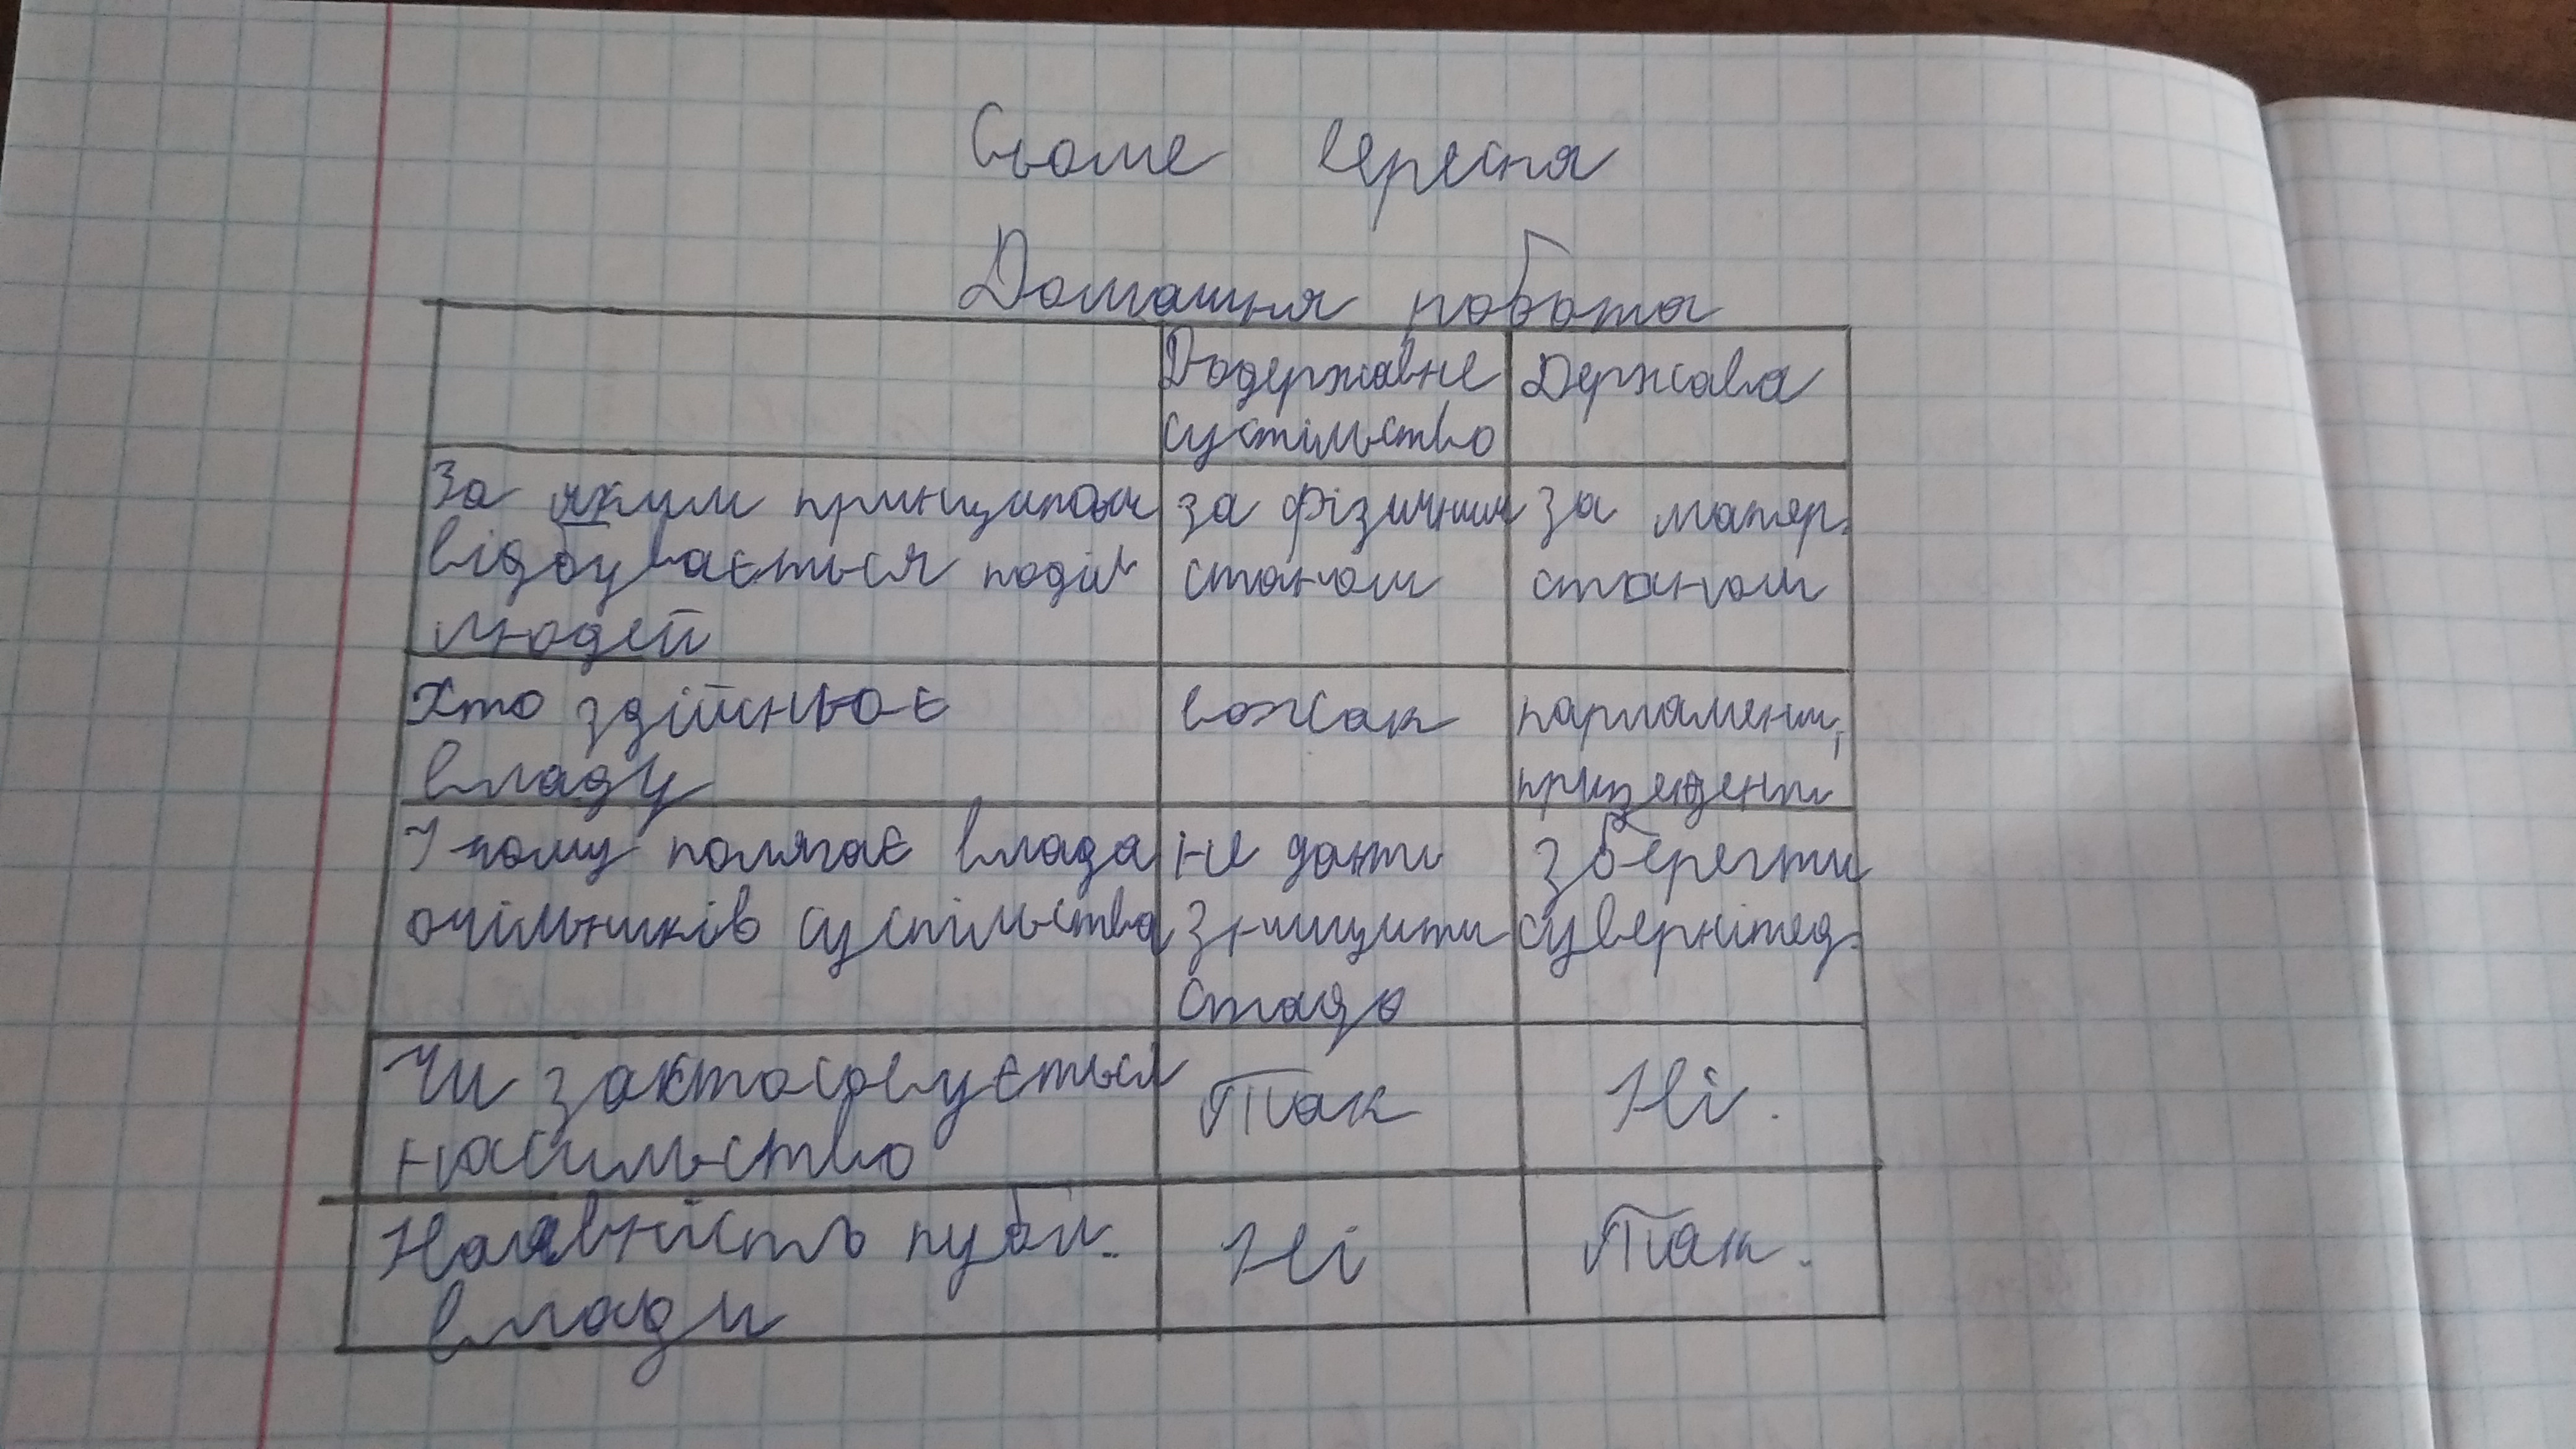 Сьоме вересня
Домашня робота
Додержавне
суспільство
Держава
За яким принципом
відбувається поділ
людей
за фізичним
станом
за матер.
станом
Хто здійснює
владу
вожак
парламент,
призедент
У чому полягає влада
очільників суспільства
не дати
знищити
стадо
зберегти
сувернітед.
Чи застосовується
насильство
Так
Ні.
Наявність публ.
влади
Ні
Так.